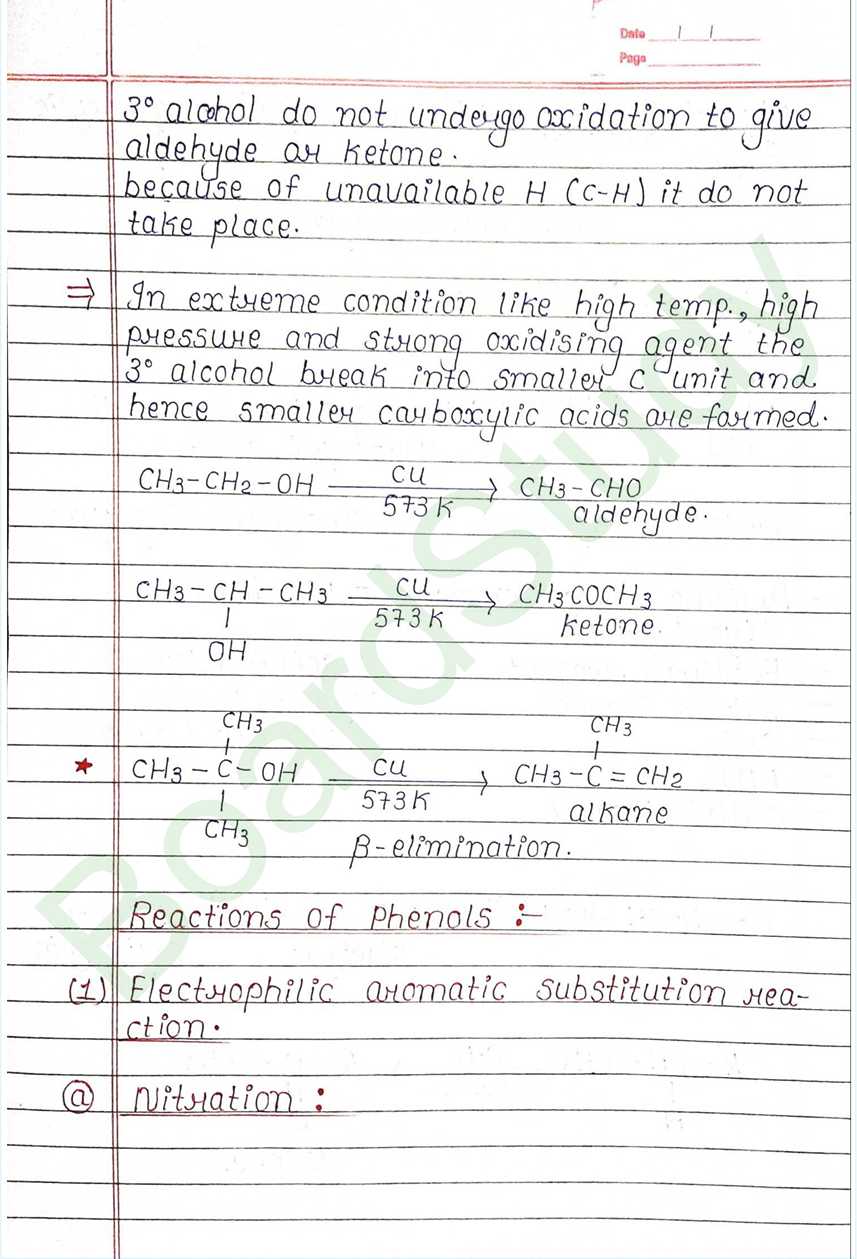 Date / /
Page
3° alcohol do not undergo oxidation to give
aldehyde or ketone.
because of unavailable H (C-H) it do not
take place.
⇒ In extreme condition like high temp., high
pressure and strong oxidising agent the
3° alcohol break into smaller C unit and
hence smaller carboxylic acids are formed.
CH3-CH2-OH Cu CH3-CHO
573K aldehyde.
CH3-CH-CH3 Cu CH3COCH3
573K ketone.
OH
CH3 CH3
★ CH3-C-OH Cu CH3-C=CH2
573K alkane
CH3 β-elimination.
Reactions of Phenols :-
(1) Electrophilic aromatic substitution rea-
ction.
(a) Nitration :
BoardStudy